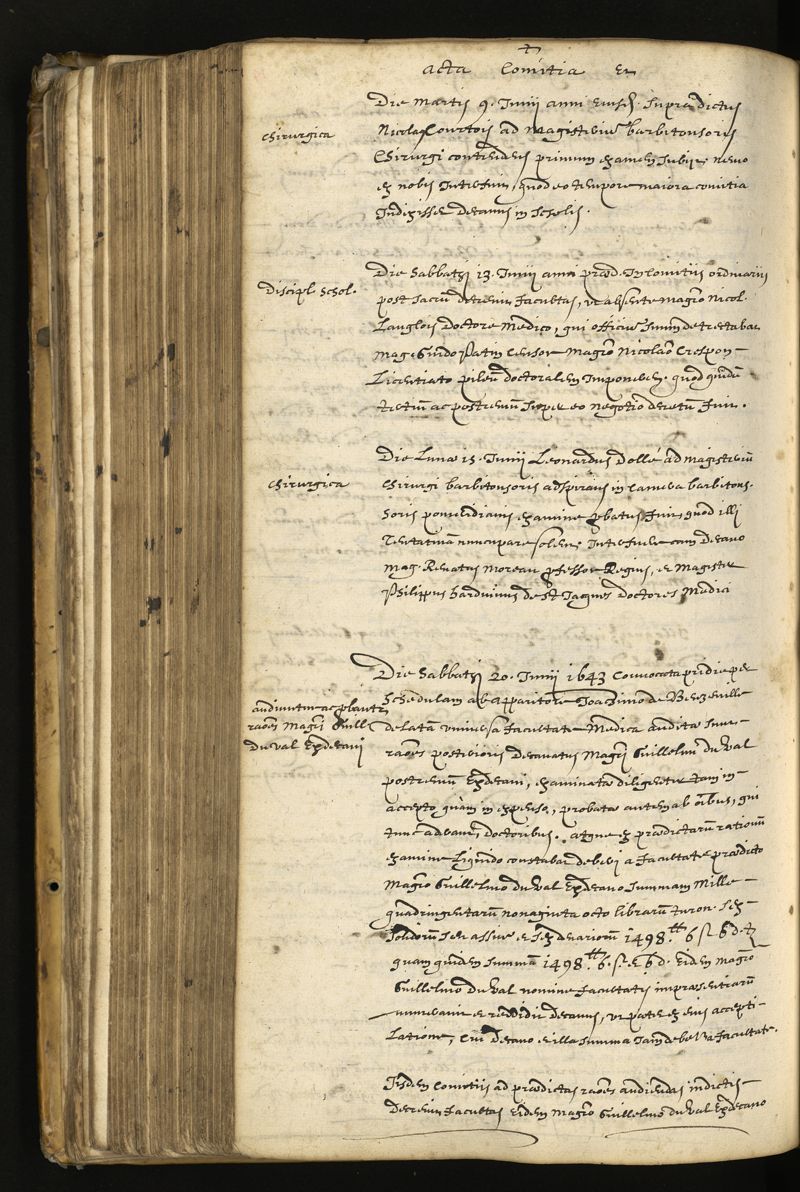 Acta Comitia et
Chirurgica
Die Martis 9. Junii anni eiusd. supradictus
Nicolas Courtois ad magisterium barbitonsoris
Chirurgi contendens primum examen subiit. nemo
ex nobis interfuit, quod eo tempore maiora comitia
indixisset decanus in scholis.
Discipl. schol.
Die Sabbathi 13. Junii anni præd. in comitiis ordinariis
post sacrum decrevit facultas, ut absente magro Nicol.
Langlois doctore medico, qui officium suum detrectabat
mag. Guido Patin censor magro Nicolao Crespon
Licentiato pileum doctoralem imponeret. quod quidem
tertium ac postremum super eo negotio decretum fuit.
Chirurgica
Die Lunæ 15. Junii Leonardus Dollé ad magisterium
Chirurgi barbitonsoris adspirans in camera barbitons-
soris pomeridianis examine probatus fuit, quod illi
tentativam nuncupare solent. Interfuere cum decano
mag. Renatus Moreau professor Regius, et magister
Philippus harduinus de St Jacques doctores medici
audiuntur ac probantur
raoēs magri Guill.
du val Exdecani
Die Sabbathi 20. Junii 1643 convocata pridie per
schedulam ab apparitore Joachimo de Bezeville
delatam universa facultate medica audita sunt
raoēs posterioris decanatus magri Guillelmi du val
postremum Exdecani, examinatæ diligenter tam in
accepto quàm in expenso, probatæ autem ab oībus, qui
tunc aderant, doctoribus. atque ex prædictarum rationum
examine liquido constabat deberi a facultate prædicto
magro Guillelmo du val Exdecano summam mille
quadringentarum nonaginta octo librarum turon. sex
solidorum seu assium et sex denariorum 1498.tt 6 s. 6 d. t
quam quidem summam 1498.tt 6. s. et 6 d. eidem magro
Guillelmo du val nomine facultatis impræsentiarum
numeravit et reddidit decanus, ut patet ex eius accepti-
latione, cui decano et illa summa iam debetur a facultate.
Iisdem comitiis ad prædictas raoēs audiendas indictis
decrevit facultas eidem magro Guillelmo du val Exdecano